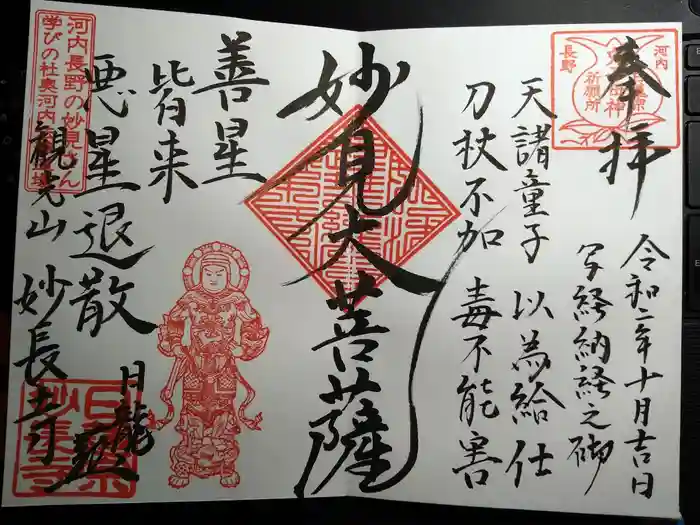 奉拝
令和二年十月吉日
写経納経之砌
天諸童子 以為給仕
刀杖不加 毒不能害
妙見大菩薩
善星
皆来
悪星退散
観光山 妙長寺
日龍
河内長野の妙見さん
河内
長野
祈願所